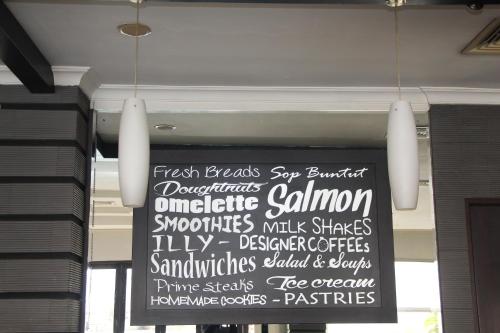 Fresh Breads Sop Buntut
Doughtnuts
omelette Salmon
SMOOTHIES MILK SHAKES
ILLY - DESIGNER COFFEES
Sandwiches Salad & Soups
Prime steaks Ice cream
HOMEMADE COOKIES - PASTRIES